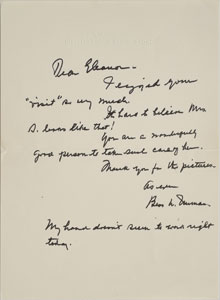 Dear Eleanor –
I enjoyed your
"visit" so very much.
It's hard to believe Mrs
S. lives like that!
You are a wonderfully
good person to take such care of her.
Thank you for the pictures.
As ever
Bess W. Truman.
My hand doesn't seem to work right
today.